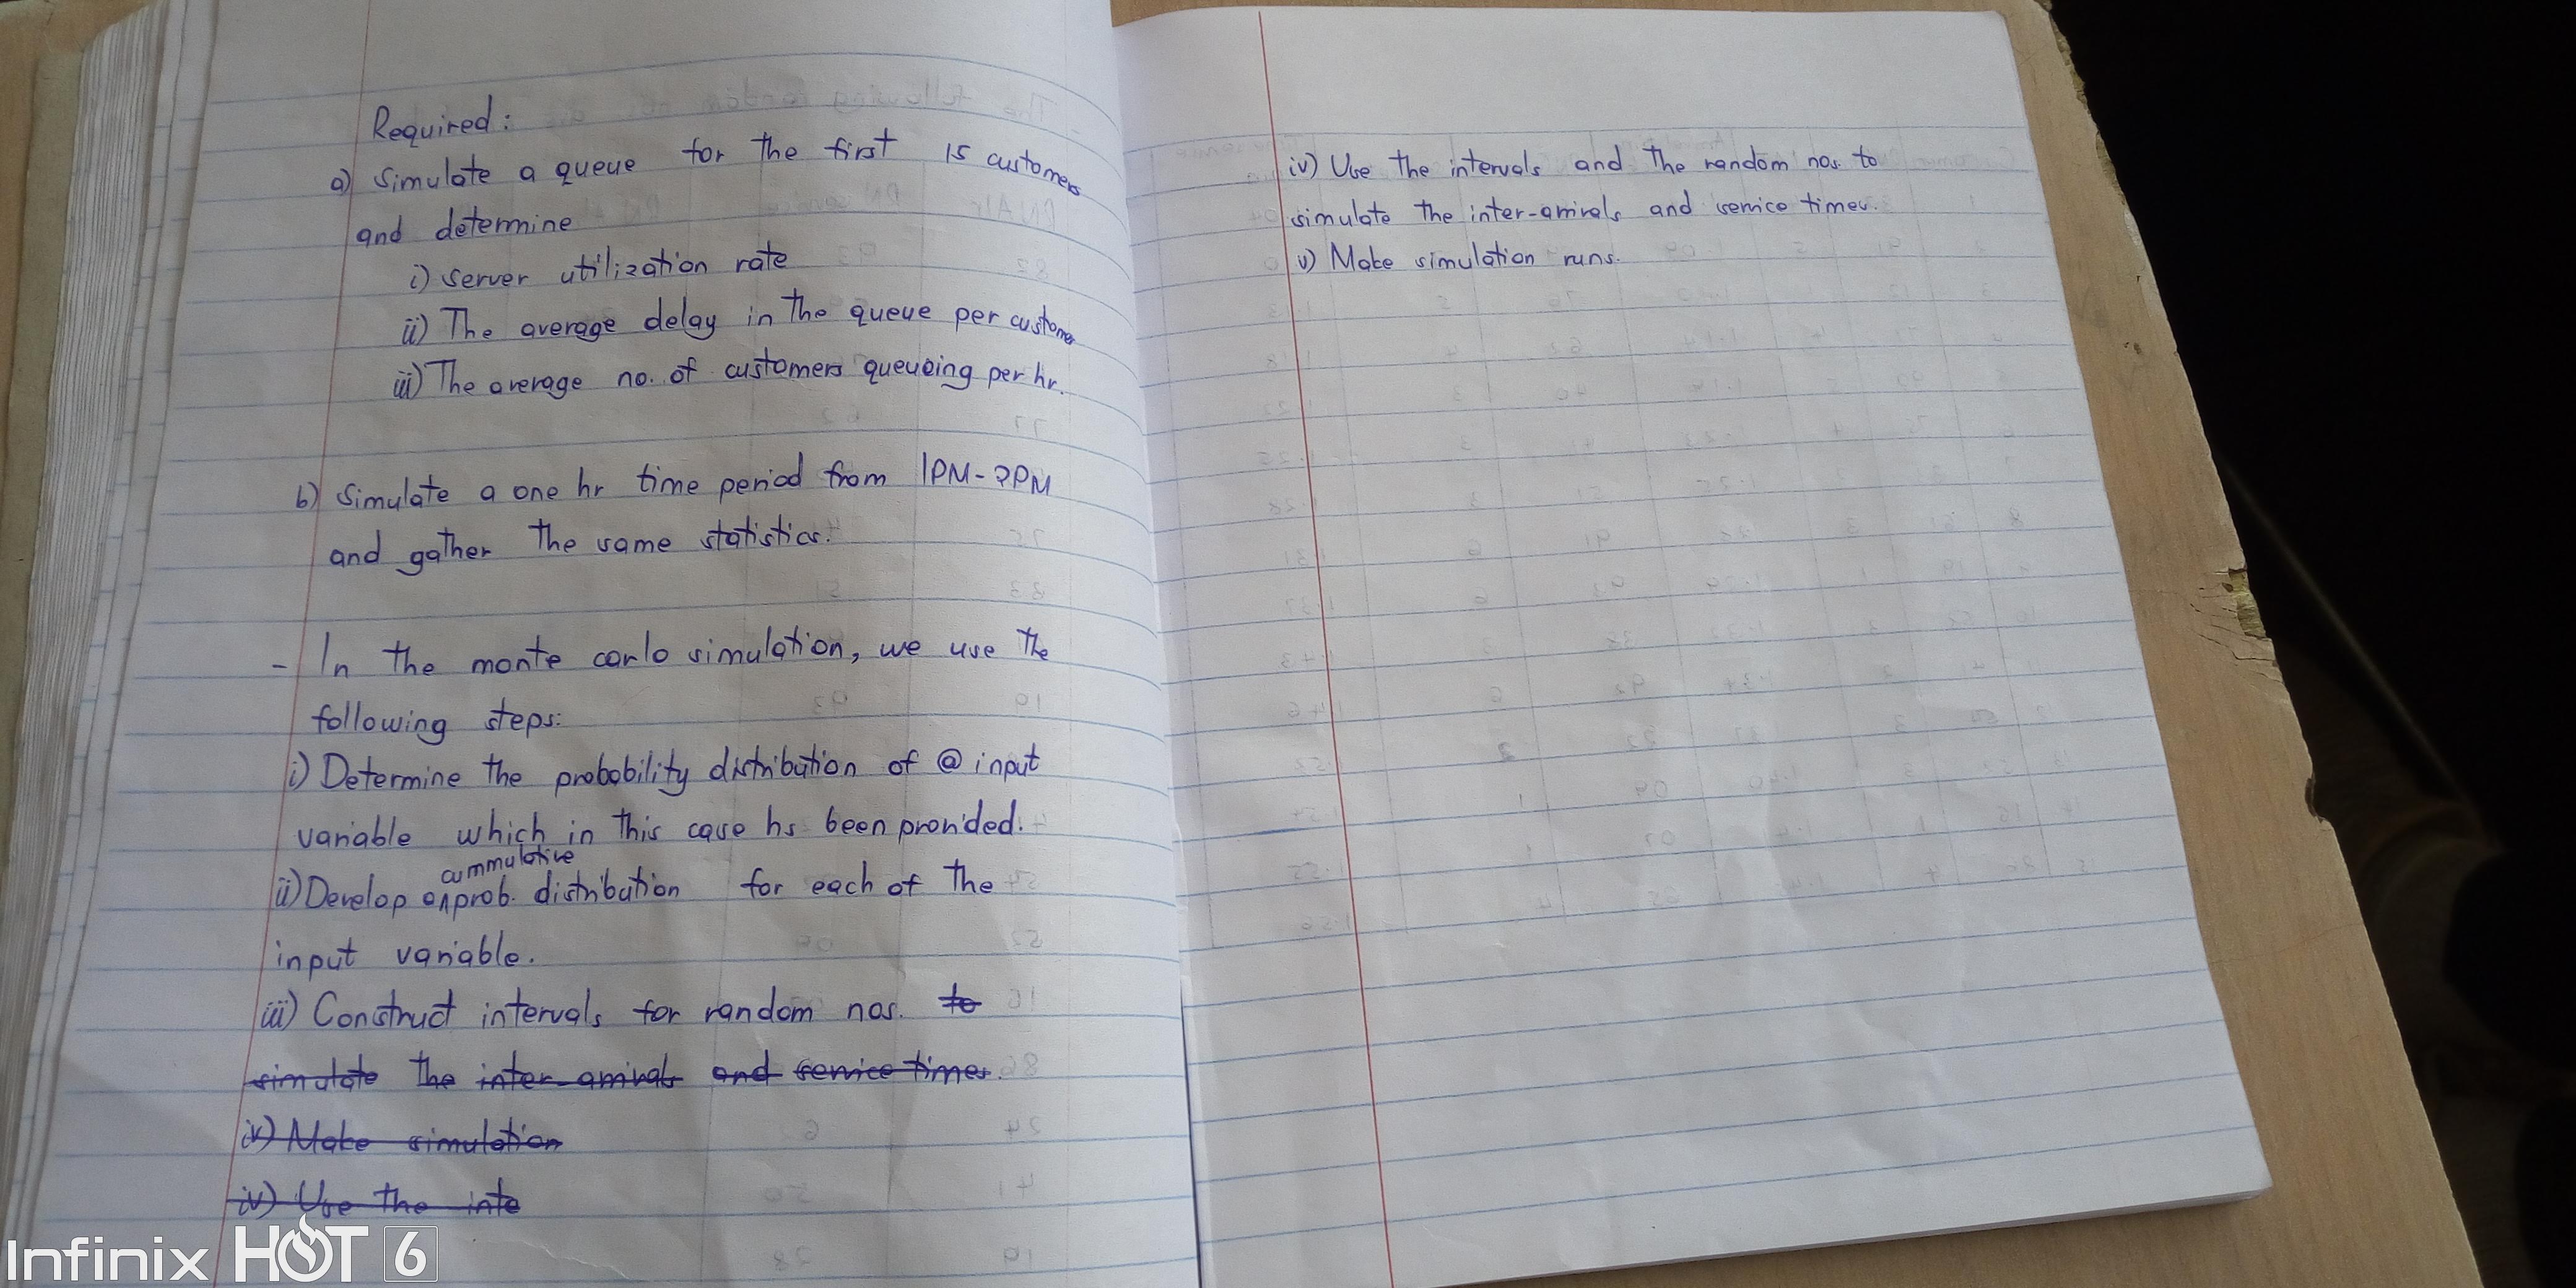 Required:
a) Simulate a queue for the first 15 customers
and determine
i) server utilization rate
ii) The average delay in the queue per customer
iii) The average no. of customers queueing per hr.
b) Simulate a one hr time period from 1PM-2PM
and gather the same statistics.
- In the monte carlo simulation, we use the
following steps:
i) Determine the probability distribution of @ input
variable which in this case hs been provided.
cummulative
ii) Develop a prob. distribution for each of the
input variable.
iii) Construct intervals for random nos. to
simulate the inter-arrivals and service times.
iv) Make simulation
iv) Use the inte
iv) Use the intervals and the random nos. to
simulate the inter-arrivals and service times.
v) Make simulation runs.
Infinix HOT 6